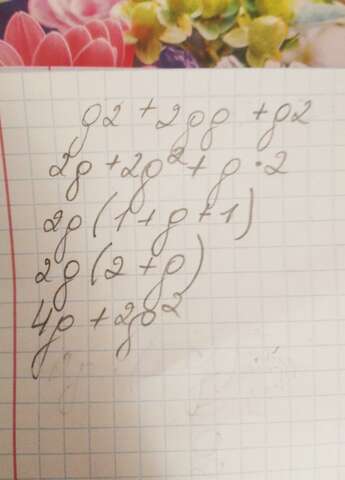 g2 + 2gg + g2
2g + 2g² + g · 2
2g (1 + g + 1)
2g (2 + g)
4g + 2g²